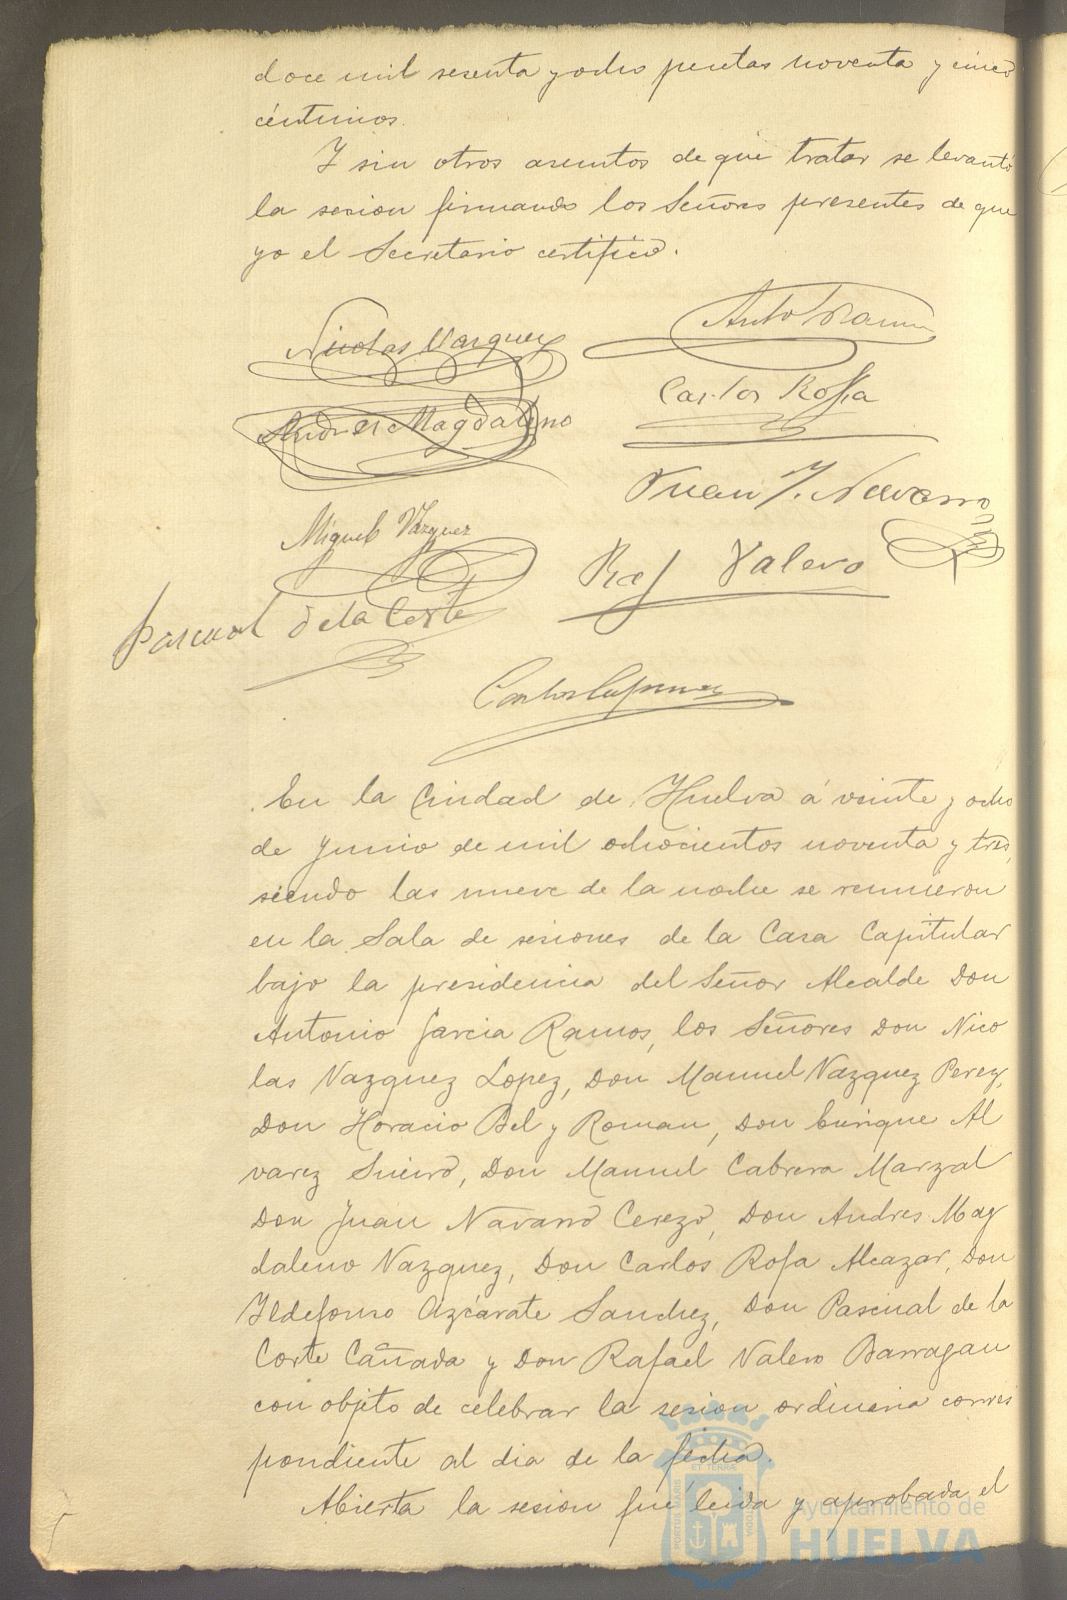 doce mil sesenta y ocho pesetas noventa y cinco
céntimos.
Y sin otros asuntos de que tratar se levantó
la sesion firmando los Señores presentes de que
yo el Secretario certifico.
Nicolas Vazquez
Anto Gª Ramos
Andres Magdaleno
Carlos Rofa
Juan J. Navarro
Miguel Vazquez
Raf Valero
Pascual de la Corte
Carlos
En la Ciudad de Huelva á veinte y ocho
de Junio de mil ochocientos noventa y tres,
siendo las nueve de la noche se reunieron
en la Sala de sesiones de la Casa Capitular
bajo la presidencia del Señor Alcalde Don
Antonio Garcia Ramos, los Señores Don Nico
las Vazquez Lopez, Don Manuel Vazquez Perez,
Don Horacio Bel y Roman, Don Enrique Al
varez Sueiro, Don Manuel Cabrera Marzal
Don Juan Navarro Cerezo, Don Andres Mag
daleno Vazquez, Don Carlos Rofa Alcazar, Don
Ildefonso Azcárate Sanchez, Don Pascual de la
Corte Cañada y Don Rafael Valero Barragan
con objeto de celebrar la sesion ordinaria corres
pondiente al dia de la fecha.
Abierta la sesion fué leida y aprobada el
PORTUS MARIS ET TERRAE CUSTODIA
Ayuntamiento de
HUELVA